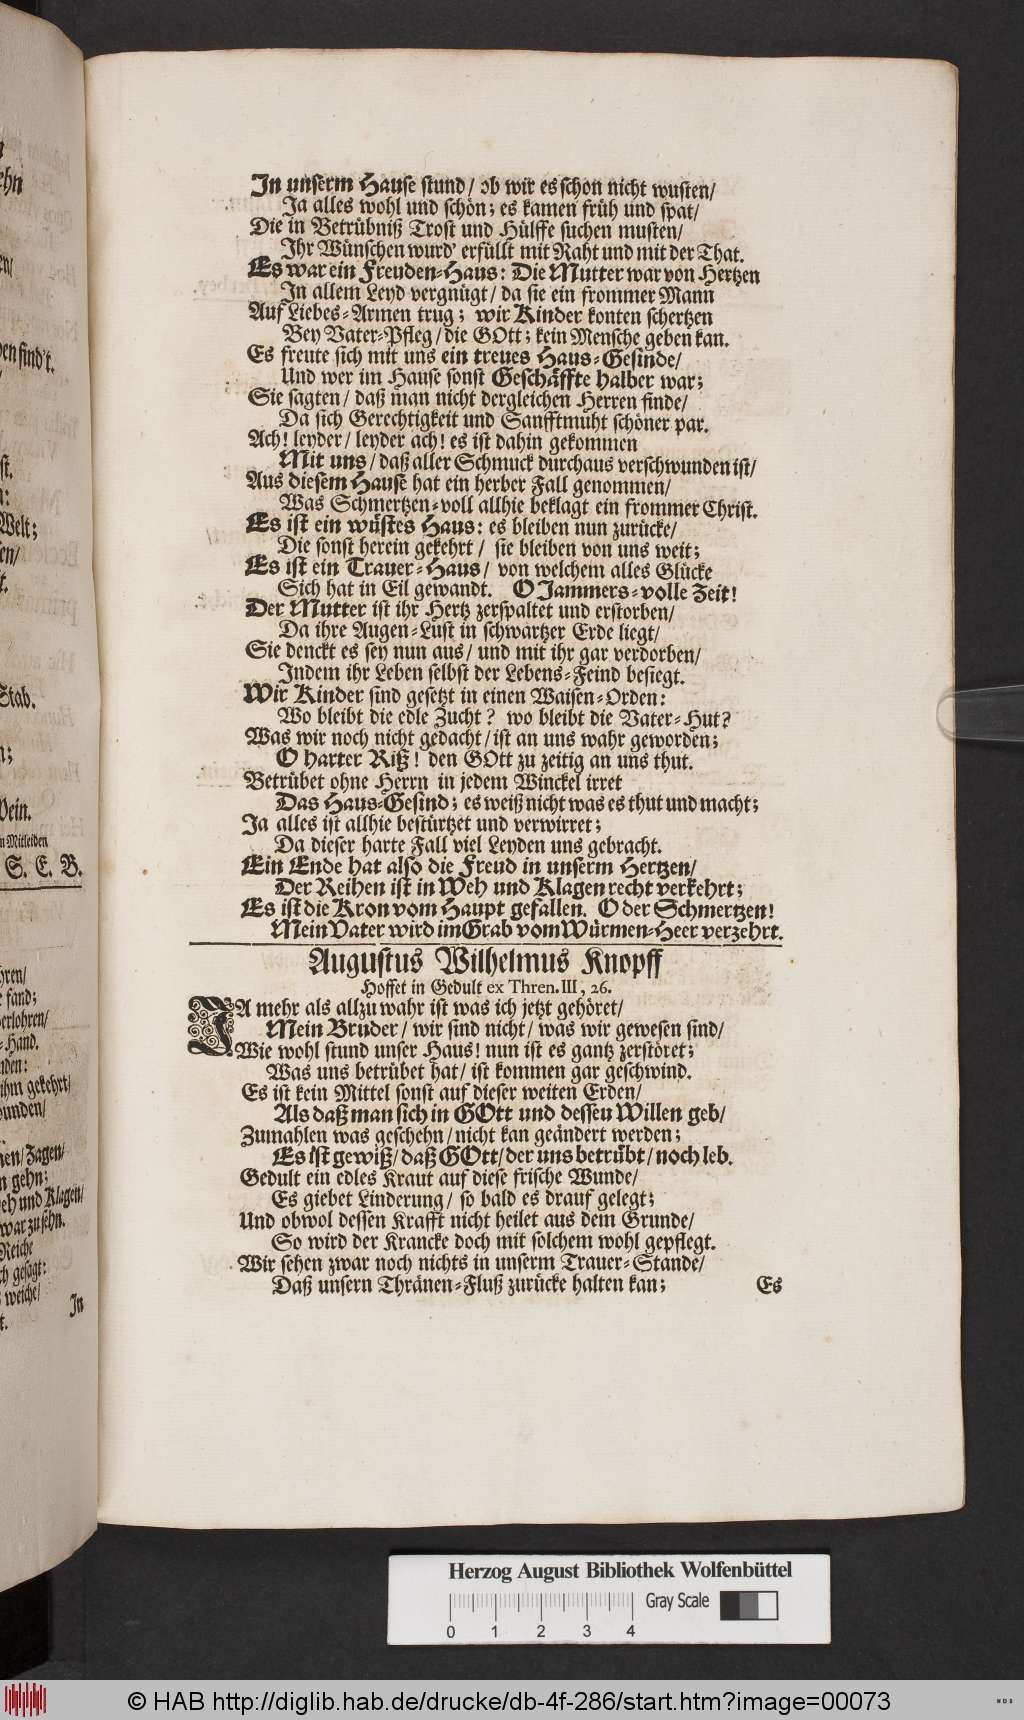 In unserm Hause stund/ ob wir es schon nicht wusten/
Ja alles wohl und schön; es kamen früh und spat/
Die in Betrübniß Trost und Hülffe suchen musten/
Ihr Wünschen wurd' erfüllt mit Raht und mit der That.
Es war ein Freuden-Haus: Die Mutter war von Hertzen
In allem Leyd vergnügt/ da sie ein frommer Mann
Auf Liebes-Armen trug; wir Kinder konten schertzen
Bey Vater-Pfleg/ die GOtt; kein Mensche geben kan.
Es freute sich mit uns ein treues Haus-Gesinde/
Und wer im Hause sonst Geschäffte halber war;
Sie sagten/ daß man nicht dergleichen Herren finde/
Da sich Gerechtigkeit und Sanfftmuht schöner par.
Ach! leyder/ leyder ach! es ist dahin gekommen
Mit uns/ daß aller Schmuck durchaus verschwunden ist/
Aus diesem Hause hat ein herber Fall genommen/
Was Schmertzen-voll allhie beklagt ein frommer Christ.
Es ist ein wüstes Haus: es bleiben nun zurücke/
Die sonst herein gekehrt/ sie bleiben von uns weit;
Es ist ein Trauer-Haus/ von welchem alles Glücke
Sich hat in Eil gewandt. O Jammers-volle Zeit!
Der Mutter ist ihr Hertz zerspaltet und erstorben/
Da ihre Augen-Lust in schwartzer Erde liegt/
Sie denckt es sey nun aus/ und mit ihr gar verdorben/
Indem ihr Leben selbst der Lebens-Feind besiegt.
Wir Kinder sind gesetzt in einen Waisen-Orden:
Wo bleibt die edle Zucht? wo bleibt die Vater-Hut?
Was wir noch nicht gedacht/ ist an uns wahr geworden;
O harter Riß! den GOtt zu zeitig an uns thut.
Betrübet ohne Herrn in jedem Winckel irret
Das Haus-Gesind; es weiß nicht was es thut und macht;
Ja alles ist allhie bestürtzet und verwirret;
Da dieser harte Fall viel Leyden uns gebracht.
Ein Ende hat also die Freud in unserm Hertzen/
Der Reihen ist in Weh und Klagen recht verkehrt;
Es ist die Kron vom Haupt gefallen. O der Schmertzen!
Mein Vater wird im Grab vom Würmen-Heer verzehrt.
Augustus Wilhelmus Knopff
Hoffet in Gedult ex Thren. III, 26.
JA mehr als allzu wahr ist was ich jetzt gehöret/
Mein Bruder/ wir sind nicht/ was wir gewesen sind/
Wie wohl stund unser Haus! nun ist es gantz zerstöret;
Was uns betrübet hat/ ist kommen gar geschwind.
Es ist kein Mittel sonst auf dieser weiten Erden/
Als daß man sich in GOtt und dessen Willen geb/
Zumahlen was geschehn/ nicht kan geändert werden;
Es ist gewiß/ daß GOtt/ der uns betrübt/ noch leb.
Gedult ein edles Kraut auf diese frische Wunde/
Es giebet Linderung/ so bald es drauf gelegt;
Und obwol dessen Krafft nicht heilet aus dem Grunde/
So wird der Krancke doch mit solchem wohl gepflegt.
Wir sehen zwar noch nichts in unserm Trauer-Stande/
Daß unsern Thränen-Fluß zurücke halten kan;
Es
find't.
st.
Welt;
Stab.
Wein.
Mitleiden
S. E. B.
fand;
verlohren/
Hand.
ihm gekehrt/
Zagen/
gehn;
und Klagen/
war zu sehn.
Reiche
gesagt:
weiche/
In
Herzog August Bibliothek Wolfenbüttel
Gray Scale
0 1 2 3 4
© HAB http://diglib.hab.de/drucke/db-4f-286/start.htm?image=00073